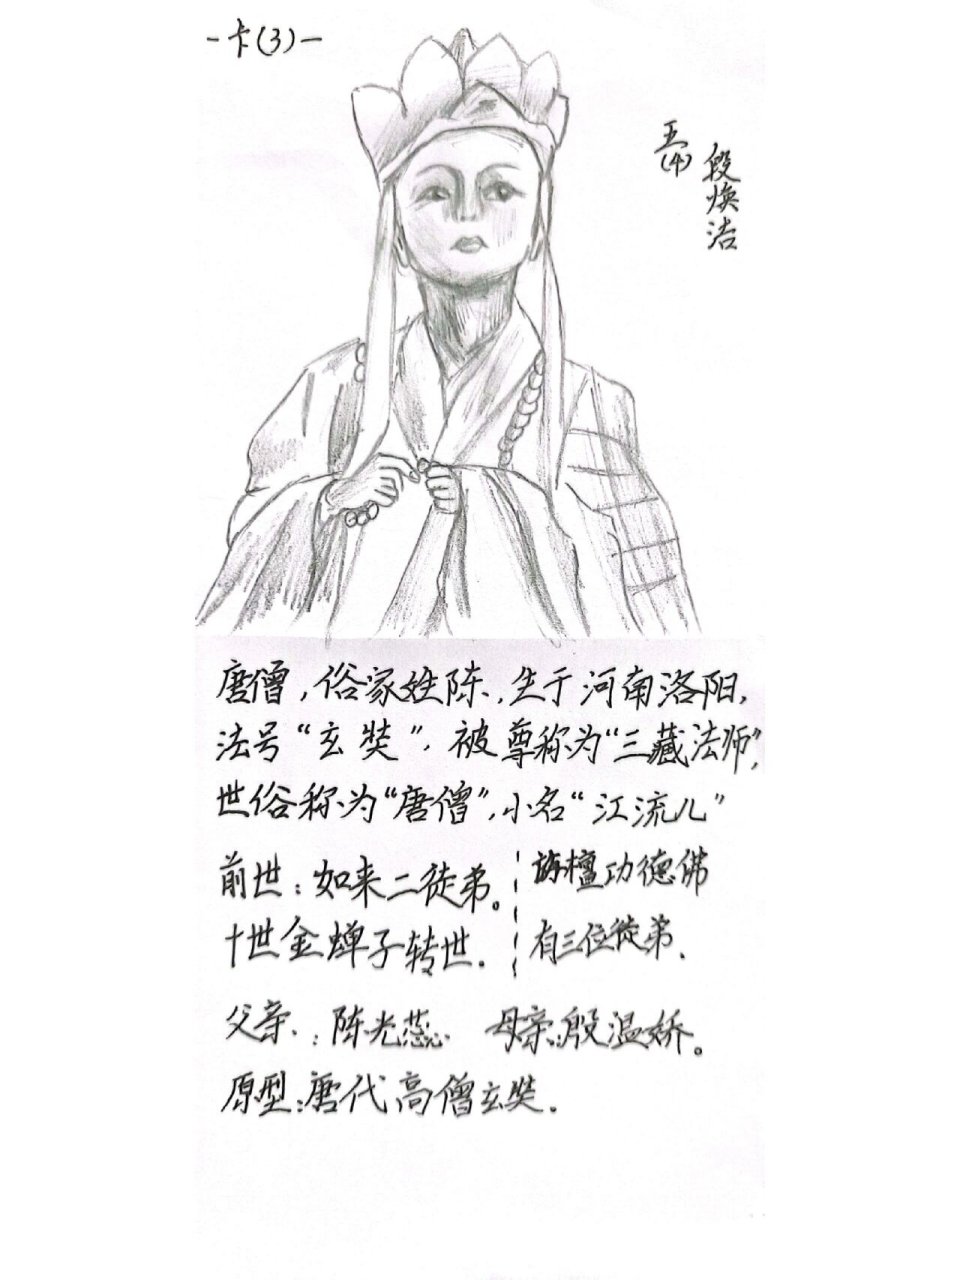 -卡(3)-
五(4)
段焕洁
唐僧,俗家姓陈,生于河南洛阳,
法号“玄奘”,被尊称为“三藏法师”,
世俗称为“唐僧”,小名“江流儿”
前世:如来二徒弟。
十世金蝉子转世.
旃檀功德佛
有三位徒弟.
父亲:陈光蕊 母亲:殷温娇。
原型:唐代高僧玄奘.